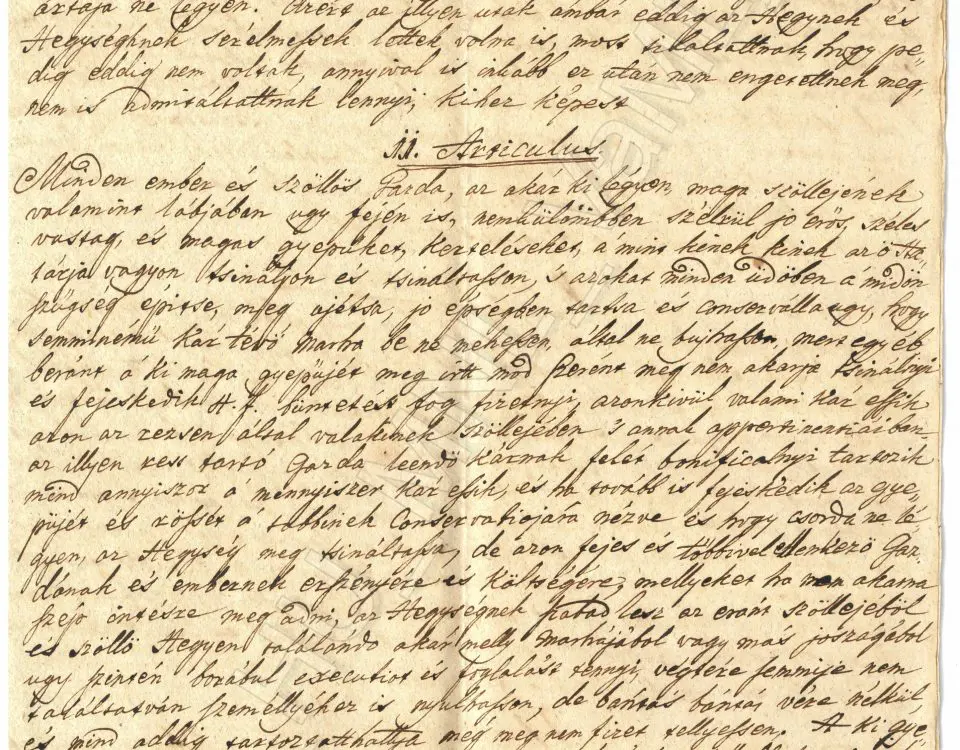 artaja ne légyen. Azért az illyen utak ambár eddig az Hegynek és
Hegységhnek serelmessek lettek volna is, most tilaltattnak, hogy pe,,
dig eddig nem voltak, annyival is inkább ez után nem engetettnek meg
nem is admitáltattnak lennyi, kihez képest
11. Articulus.
Minden ember és szöllös Gazda, az akár ki légyen, maga szöllejének
valamint lábjában ugy fején is, nemkülömbben szélrül jo erös, széles
vastag, és magas gyepüket, kerteléseket, a mint kinek kinek az ö Ha,,
tárja vagyon tsinállyon és tsináltasson, 's azokat minden üdöben a midön
szügség épitse, meg ujétsa, jo épségben tartsa és conservállya ugy, hogy
semminémü kár tévö marha be ne mehessen, által ne bujhasson, mert egyéb
beránt á ki maga gyepüjét meg irtt mód szerént meg nem akarja tsinálnyi
és fejeskedik H. f. büntetést fog fizetnyi, azonkivül valami kár essik
azon az rezsen által valakinek szöllejében 's annak appertinentiáiban
az illyen ross tartó Gazda leendö kárnak felét bonificalnyi tartozik
mind annyiszor á mennyiszer kár essik, es ha tovább is fejeskedik az gye,,
püjét és rössét á tübbinek Conservatiojára nézve és hogy csorda ne lé
gyen, az Hegység meg tsináltassa, de azon fejes és többivel ellenkezö Gaz
dának és embernek erszényére és költségére, mellyeket ha nem akarna
szép intésre meg adni, az Hegységnek szabad lesz az eránt szöllejéböl
és szöllö Hegyen találándo akármelly marhájábol vagy más joszágábol
ugy szintén borábul executiot és foglalást tennyi, végtére semmije nem
találtatván személlyéhez is nyulhasson, de bántás bántás vére nélkül,
és mind addig tartoztathattja még meg nem fizet tellyessen. A ki gye,,